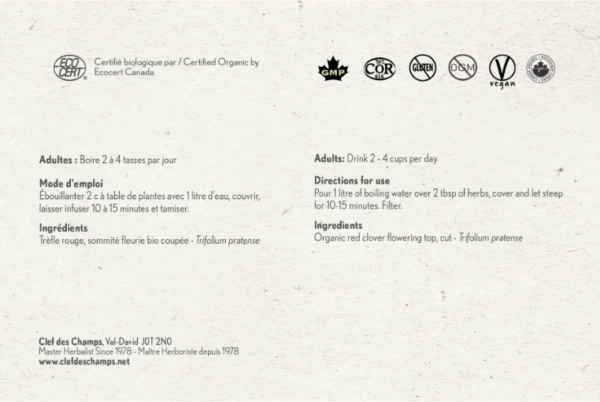 ECO
CERT®
Certifié biologique par / Certified Organic by
Ecocert Canada
GMP
COR
GLUTEN
OGM
V
vegan
Adultes : Boire 2 à 4 tasses par jour
Mode d'emploi
Ébouillanter 2 c à table de plantes avec 1 litre d'eau, couvrir,
laisser infuser 10 à 15 minutes et tamiser.
Ingrédients
Trèfle rouge, sommité fleurie bio coupée - Trifolium pratense
Adults: Drink 2 - 4 cups per day
Directions for use
Pour 1 litre of boiling water over 2 tbsp of herbs, cover and let steep
for 10-15 minutes. Filter.
Ingredients
Organic red clover flowering top, cut - Trifolium pratense
Clef des Champs, Val-David J0T 2N0
Master Herbalist Since 1978 - Maître Herboriste depuis 1978
www.clefdeschamps.net